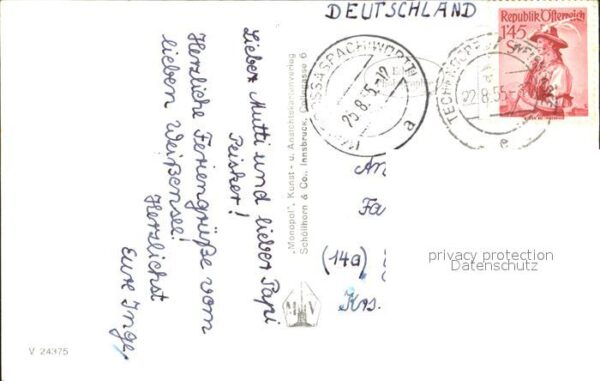 DEUTSCHLAND
Republik Österreich
1'45
22.8.55
25.8.55-12
a
e
Lieber Mutti und lieber Papi
Peisker!
Herzliche Feriengrüße vom
lieben Weißensee!
Herzlichst
Eure Inge
"Monopol", Kunst- u. Ansichtskartenverlag
Schöllhorn & Co., Innsbruck,
M V
An
Fa
(14a)
Krs.
privacy protection
Datenschutz
V 24375